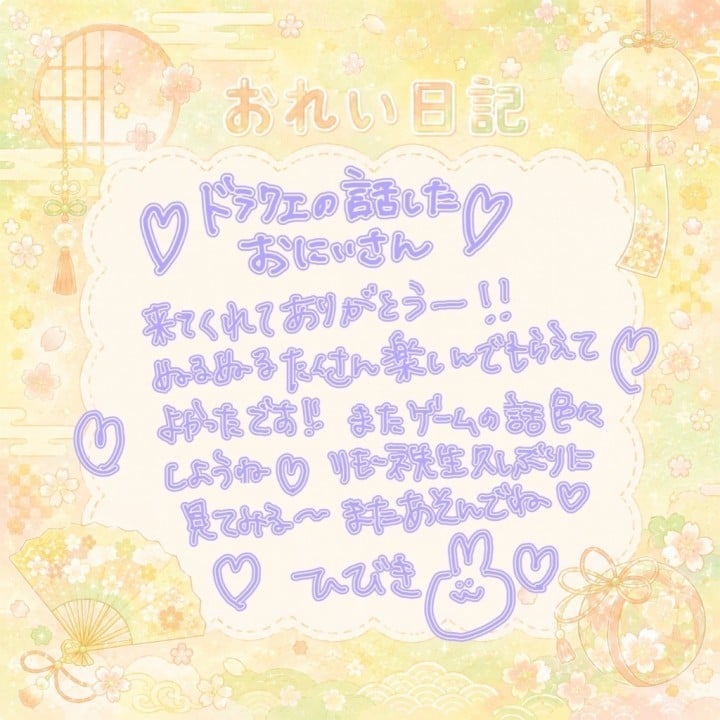 おれい日記
ドラクエの話した
おにぃさん
来てくれてありがとうー!!
ぬるぬるたくさん楽しんでもらえて
よかったです!! またゲームの話色々
しようね♡ リモー先生久しぶりに
見てみる〜 またあそんでね♡
ひびき